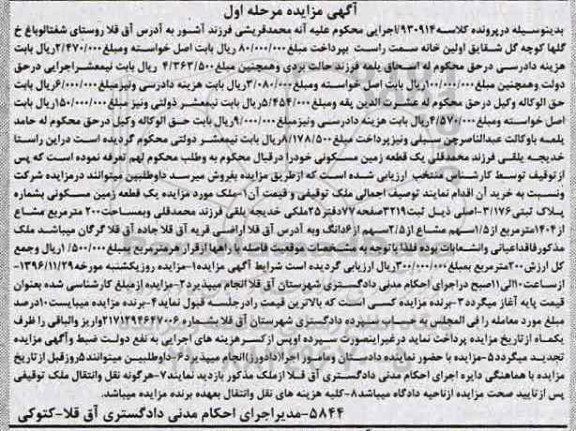 آگهی مزایده مرحله اول
بدینوسیله درپرونده کلاسه۹۳۰۹۱۴/اجرایی محکوم علیه آنه محمدقریشی فرزند آشور به آدرس آق قلا روستای شفتالوباغ خ
گلها کوچه گل شقایق اولین خانه سمت راست بپرداخت مبلغ۸۰/۰۰۰/۰۰۰ ریال بابت اصل خواسته ومبلغ۲/۴۷۰/۰۰۰ریال بابت
هزینه دادرسی درحق محکوم له اسحاق یلمه فرزند حالت بردی وهمچنین مبلغ۴/۳۶۳/۵۰۰ ریال بابت نیمعشراجرایی درحق
دولت وهمچنین مبلغ۱۰۰/۰۰۰/۰۰۰ریال بابت اصل خواسته ومبلغ۳/۰۸۰/۰۰۰ریال بابت هزینه دادرسی ونیزمبلغ۶/۰۰۰/۰۰۰ریال بابت
حق الوکاله وکیل درحق محکوم له عشرت الدین یقه ومبلغ۵/۴۵۴/۰۰۰ریال بابت نیمعشر دولتی ونیز مبلغ۱۵۰/۰۰۰/۰۰۰ریال بابت
اصل خواسته ومبلغ۴/۵۷۰/۰۰۰ریال بابت هزینه دادرسی ونیزمبلغ۹/۰۰۰/۰۰۰ریال بابت حق الوکاله وکیل درحق محکوم له حامد
یلمه باوکالت عبدالناصرچن سبلی ونیزپرداخت مبلغ۸/۱۷۸/۵۰۰ریال بابت نیمعشر دولتی محکوم گردیده است دراین راستا
خدیجه یلقی فرزند محمدقلی یک قطعه زمین مسکونی خودرا درقبال محکوم به وطلب محکوم لهم تعرفه نموده است که پس
از توقیف توسط کارشناس منتخب ارزیابی شده است که ازطریق مزایده بفروش میرسد داوطلبین میتوانند درمزایده شرکت
ونسبت به خرید آن اقدام نمایند توصیف اجمالی ملک توقیفی و قیمت آن۱-ملک مورد مزایده یک قطعه زمین مسکونی بشماره
پلاک ثبتی۳/۱۷۶-اصلی ذیل ثبت۳۲۱۹صفحه۷۷دفتر۲۵ملکی خدیجه یلقی فرزند محمدقلی وبمساحت۲۰۰ مترمربع مشاع
از۱۴۰۴مترمربع از۱/۵سهم مشاع از۳/۵سهم از۶دانگ وبه آدرس آق قلا اراضی قریه آق قلا جاده آق قلا گرگان میباشد ملک
مذکورفاقداعیانی وانشعابات بوده فلذا باتوجه به مشخصات موقعیت فاصله با راهها ازقرار هرمترمربع بمبلغ۱/۵۰۰/۰۰۰ ریال وجمع
کل ارزش۲۰۰مترمربع بمبلغ۳۰۰/۰۰۰/۰۰۰ریال ارزیابی گردیده است شرایط آگهی مزایده۱-مزایده روزیکشنبه مورخه۱۳۹۶/۱۱/۲۹-
ازساعت۱۰الی۱۱صبح دراجرای احکام مدنی دادگستری شهرستان آق قلا انجام میپذیرد۲-مزایده ازمبلغ کارشناسی شده بعنوان
قیمت پایه آغاز میگردد۳-برنده مزایده کسی است که بالاترین قیمت رادرجلسه قبول نماید۴-برنده مزایده میبایست۱۰درصد
مبلغ مورد معامله را فی المجلس به حساب سپرده دادگستری شهرستان آق قلا بشماره ۲۱۷۱۲۹۴۶۴۷۰۰۶واریز والباقی را ظرف
یکماه از تاریخ مزایده پرداخت نماید درغیراینصورت سپرده اوپس ازکسرهزینه های اجرایی به نفع دولت ضبط وآگهی مزایده
تجدید میگردد۵-مزایده با حضور نماینده دادستان ومامور اجرا(دادورز)انجام میپذیرد۶-داوطلبین میتوانند۵روزقبل ازتاریخ
مزایده با هماهنگی دایره اجرای احکام مدنی دادگستری آق قلا ازملک مذکور بازدید نمایند۷-هرگونه نقل وانتقال ملک توقیفی
پس ازتایید صحت مزایده ازناحیه دادگاه میباشد۸-کلیه هزینه های نقل وانتقال بعهده برنده مزایده میباشد.
۵۸۴۴-مدیراجرای احکام مدنی دادگستری آق قلا-کتوکی